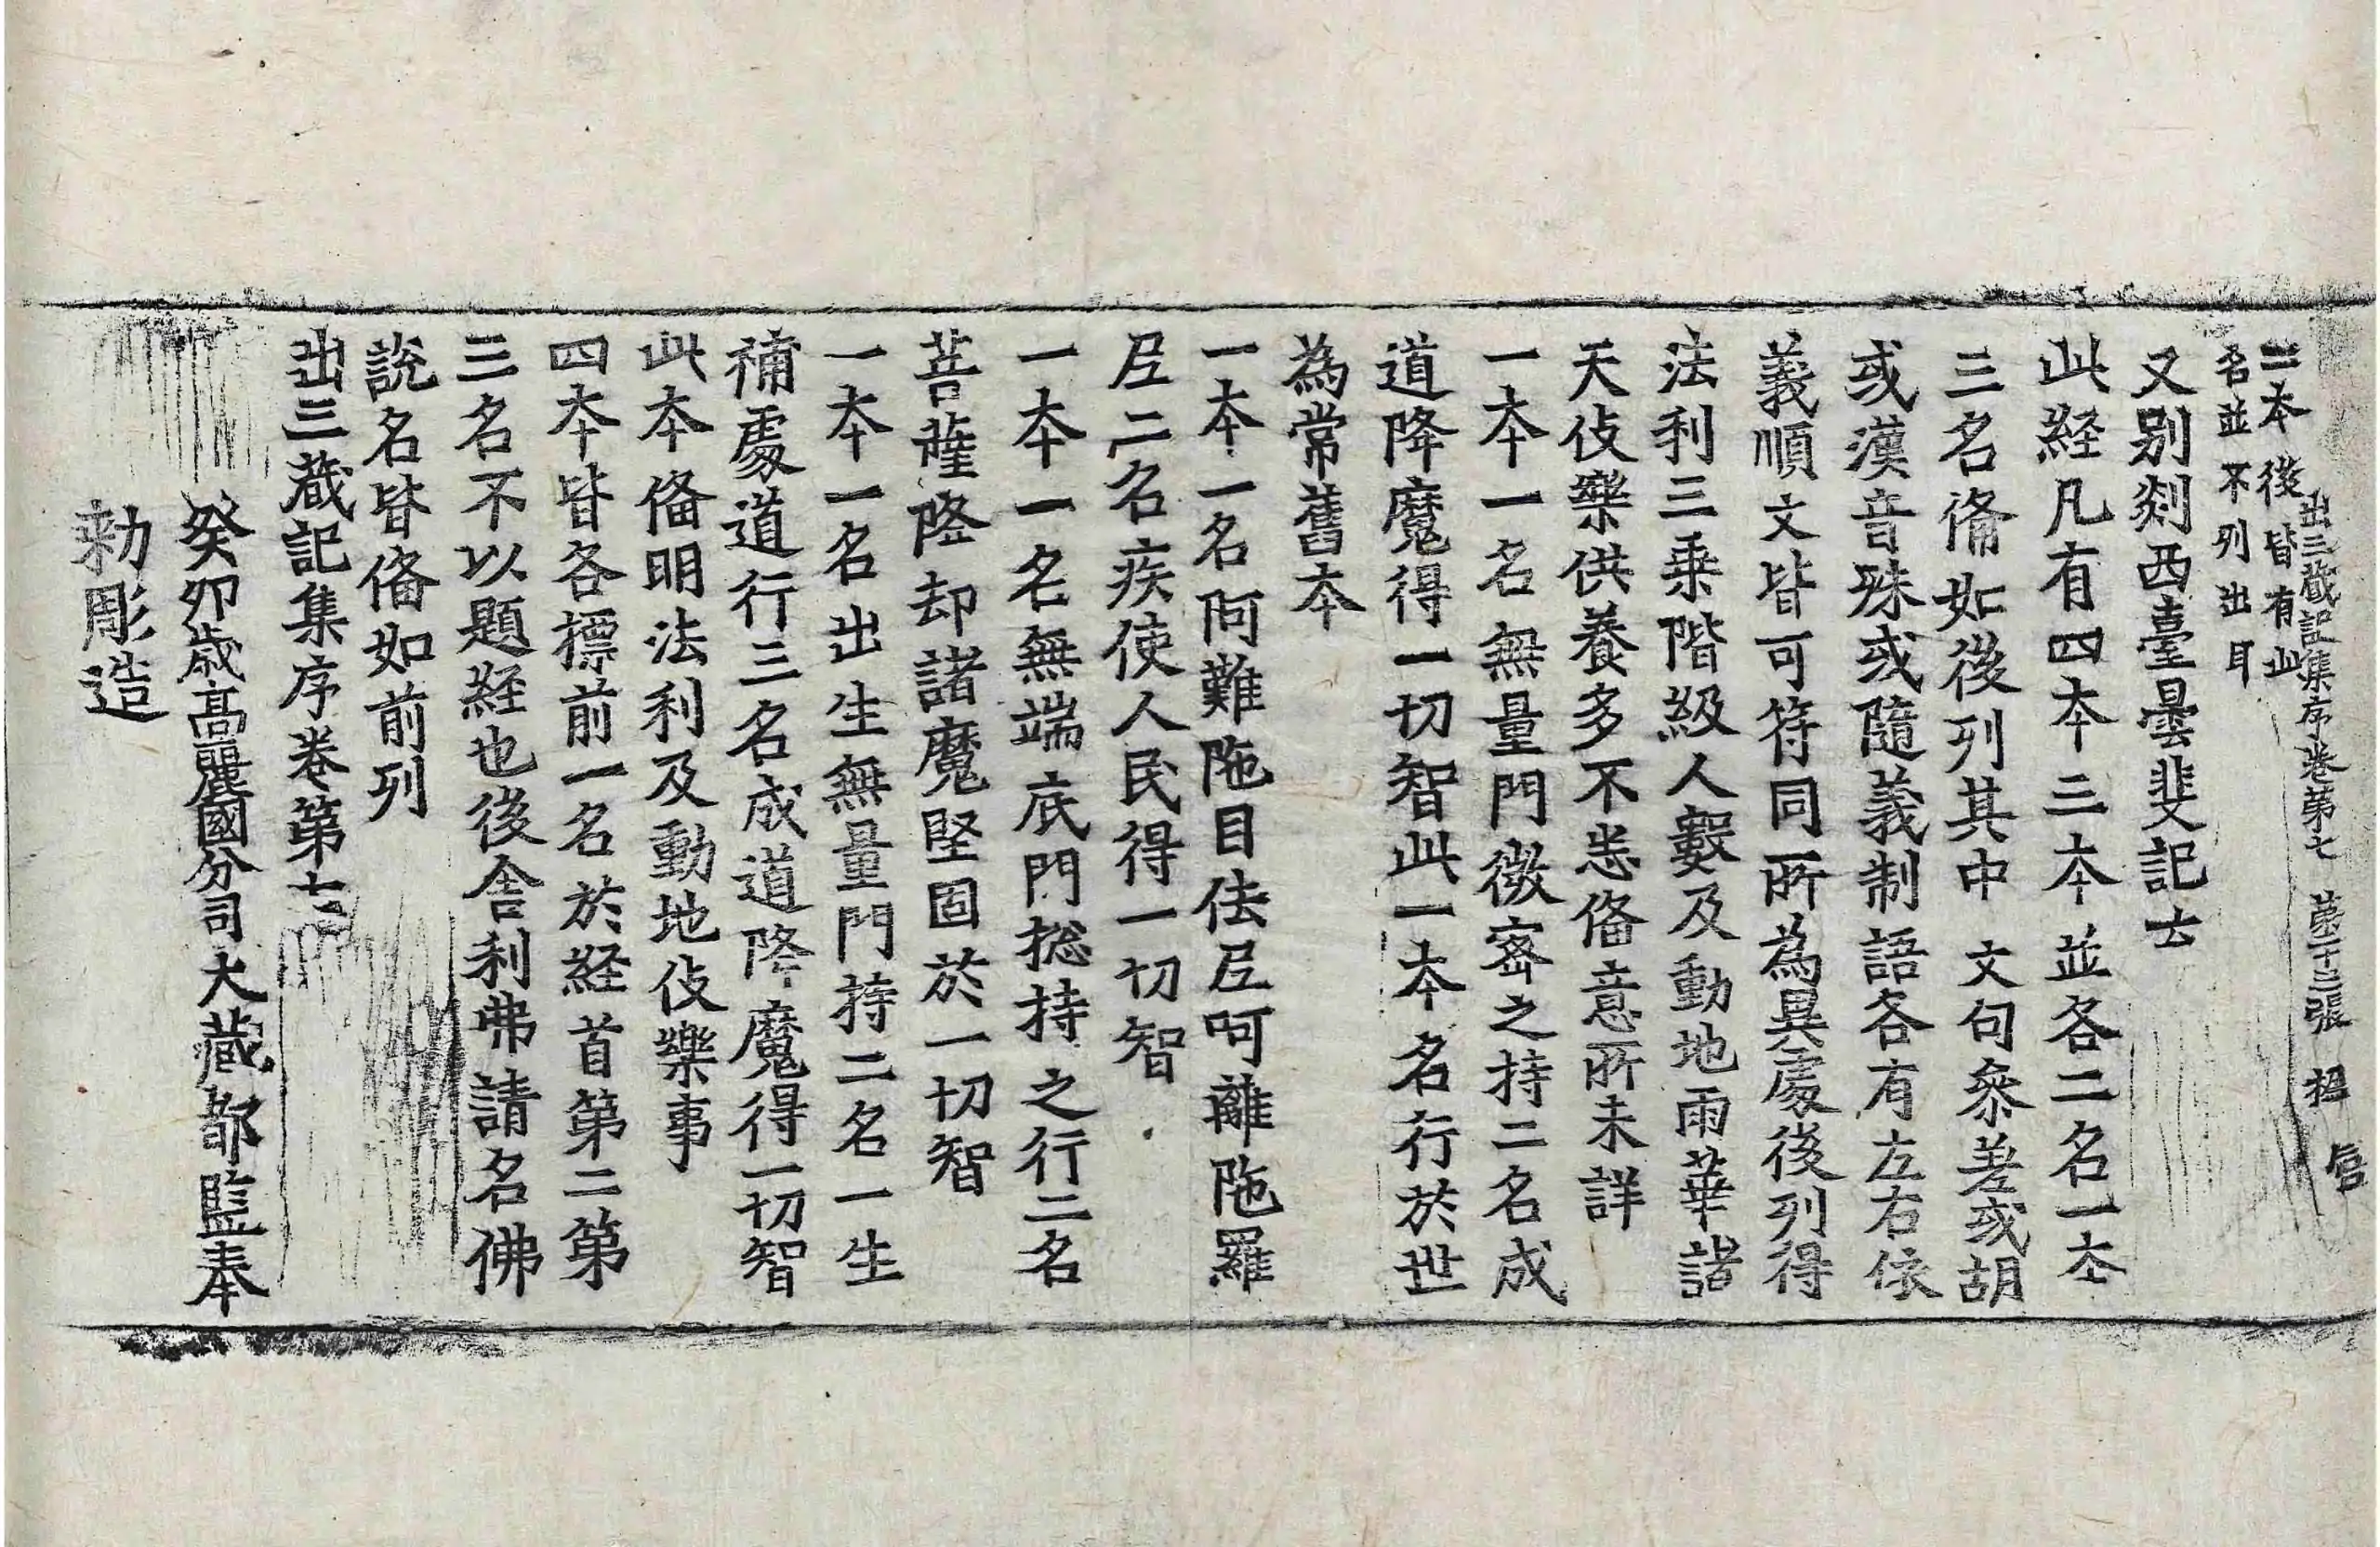 出三藏記集序卷第七 第二十三張 招 㫪
二本後皆有此
名並不列出耳
又別剡西臺曇斐記云
此経凡有四本三本並各二名一本
三名俻如後列其中文句叅差或胡
或漢音殊或隨義制語各有左右依
義順文皆可符同所為異處後列得
法利三乗階級人數及動地雨華諸
天伎樂供養多不悉俻意所未詳
一本一名無量門微宻之持二名成
道降魔得一切智此一本名行於世
為常舊本
一本一名阿難陁目佉尼呵離陁羅
尼二名疾使人民得一切智
一本一名無端底門捴持之行二名
菩薩降却諸魔堅固於一切智
一本一名出生無量門持二名一生
補處道行三名成道降魔得一切智
此本俻明法利及動地伎樂事
四本皆各標前一名於経首第二第
三名不以題経也後舎利弗請名佛
說名皆俻如前列
出三藏記集序卷第七
癸卯歳高麗國分司大藏都監奉
勑彫造